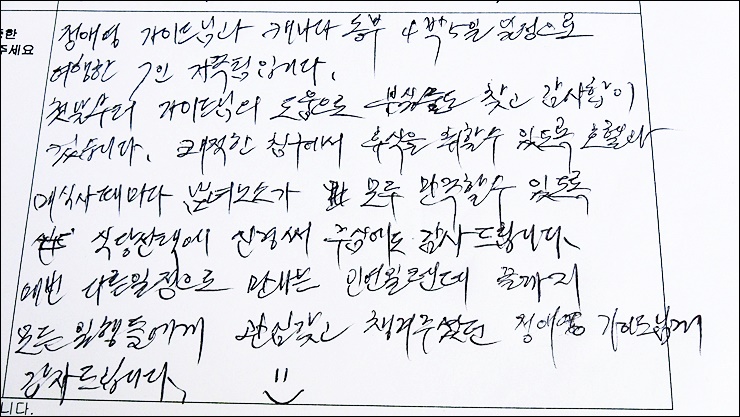 한
주세요
정애영 가이드님과 캐나다 동부 4박5일 일정으로
여행한 7인 가족팀입니다.
첫날부터 가이드님의 도움으로 찾고 감사함이
컸습니다. 쾌적한 침구에서 휴식을 취할수 있도록 호텔과
매식사때마다 남녀노소가 모두 만족할수 있도록
식당선택에 신경써 주심에도 감사드립니다.
매번 다른일정으로 만나는 인연일텐데 끝까지
모든 일행들에게 관심갖고 챙겨주셨던 정애영 가이드님께
감사드립니다.
니다.